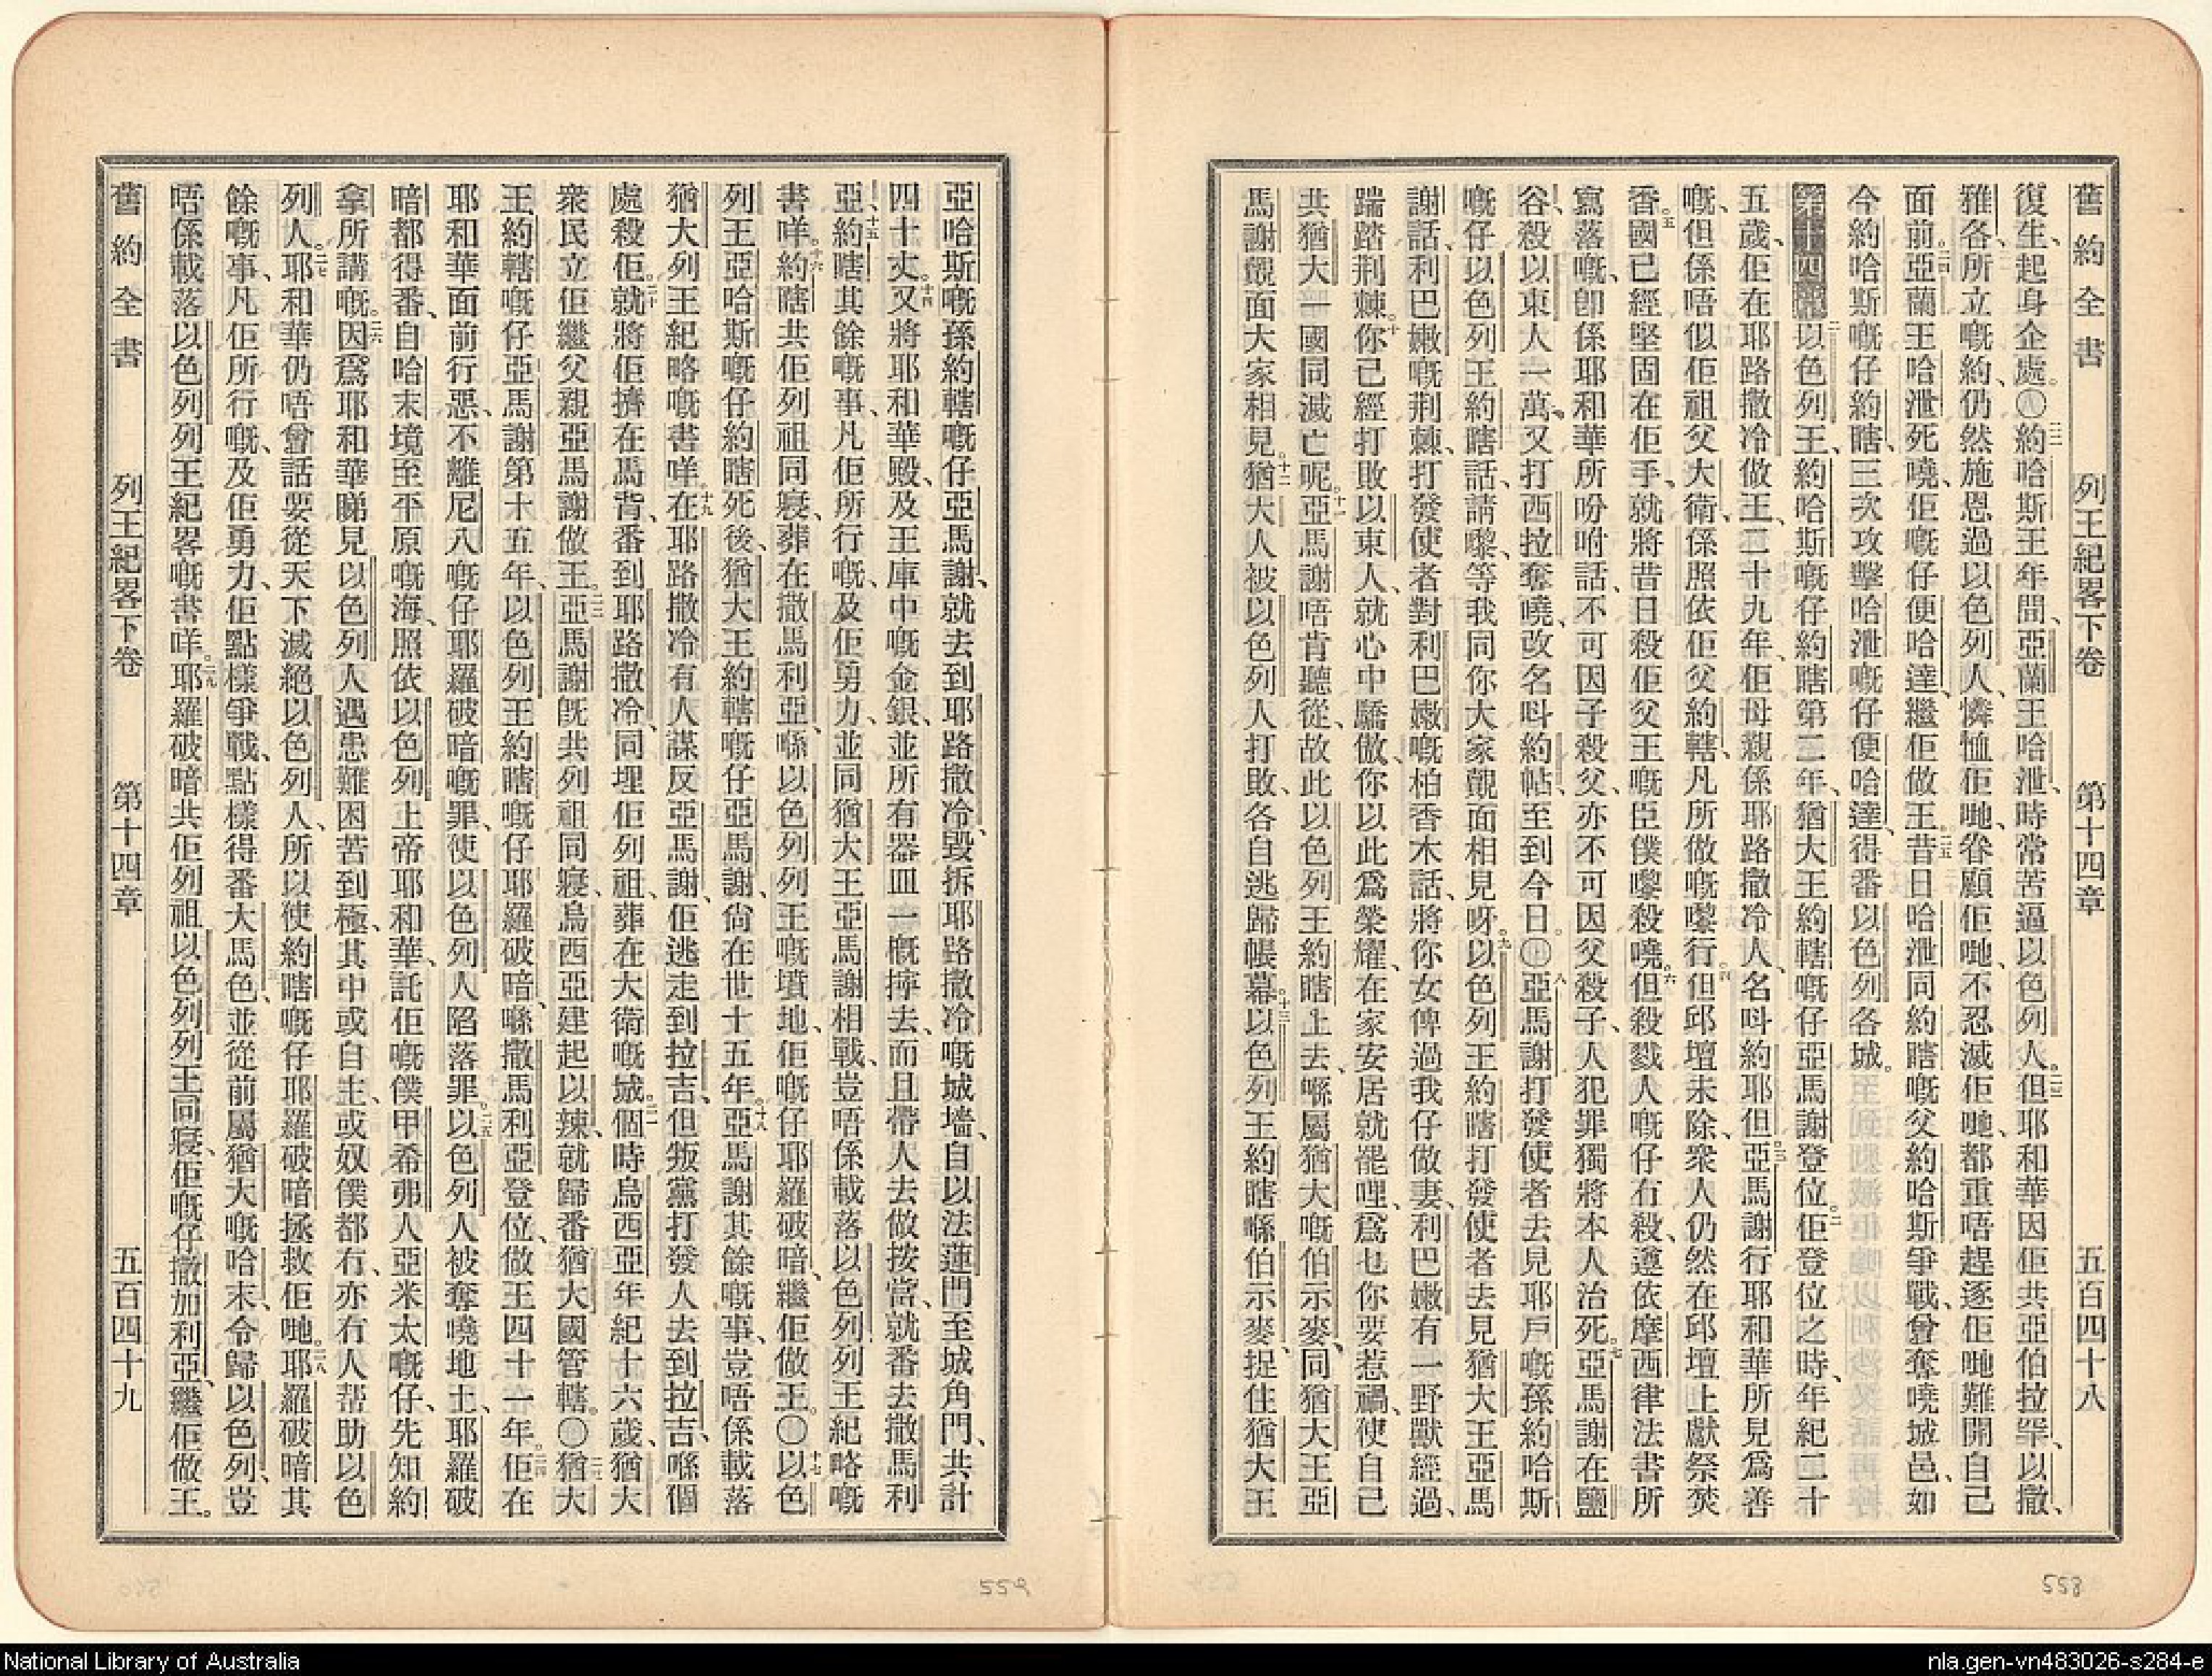 舊約全書 列王紀畧下卷 第十四章 五百四十八
復生、起身企處。〇二二約哈斯王年間、亞蘭王哈泄、時常苦逼以色列人。二三但耶和華因佢共亞伯拉罕、以撒、
雅各、所立嘅約、仍然施恩過以色列人、憐恤佢哋、眷顧佢哋、不忍滅佢哋、都重唔趕逐佢哋難開自己
面前。二四亞蘭王哈泄死曉、佢嘅仔便哈達、繼佢做王。二五昔日哈泄同約瞎嘅父約哈斯爭戰、曾奪曉城邑、如
今約哈斯嘅仔約瞎、三次攻擊哈泄嘅仔便哈達、得番以色列各城。
第十四章 一以色列王、約哈斯嘅仔約瞎第二年、猶大王約轄嘅仔亞馬謝登位。二佢登位之時、年紀二十
五歲、佢在耶路撒冷做王二十九年、佢母親係耶路撒冷人、名呌約耶但。三亞馬謝行耶和華所見為善
嘅、但係唔似佢祖父大衛、係照依佢父約轄、凡所做嘅嚟行。四但邱壇未除、衆人仍然在邱壇上獻祭焚
香。五國已經堅固在佢手、就將昔日殺佢父王嘅臣僕嚟殺曉。六但殺戮人嘅仔冇殺、遵依摩西律法書所
寫落嘅、卽係耶和華所吩咐話、不可因子殺父、亦不可因父殺子、人犯罪獨將本人治死。七亞馬謝在鹽
谷、殺以東人一萬、又打西拉奪曉、改名呌約帖、至到今日。〇八亞馬謝打發使者去見耶戶嘅孫約哈斯
嘅仔以色列王約瞎話、請嚟、等我同你大家覿面相見呀。九以色列王約瞎打發使者去見猶大王亞馬
謝話、利巴嫩嘅荆棘、打發使者對利巴嫩嘅柏香木話、將你女俾過我仔做妻、利巴嫩有一野獸經過、
踹踏荆棘。十你已經打敗以東人、就心中驕傲、你以此為榮耀、在家安居就罷哩、爲乜你要惹禍、使自己
共猶大一國同滅亡呢。十一亞馬謝唔肯聽從、故此以色列王約瞎上去、喺屬猶大嘅伯示麥、同猶大王亞
馬謝覿面大家相見。十二猶大人被以色列人打敗、各自逃歸帳幕。十三以色列王約瞎喺伯示麥、捉住猶大王
亞哈斯嘅孫約轄嘅仔亞馬謝、就去到耶路撒冷、毀拆耶路撒冷嘅城墻、自以法蓮門至城角門、共計
四十丈。十四又將耶和華殿、及王庫中嘅金銀、並所有器皿一概擰去、而且帶人去做按當、就番去撒馬利
亞、十五約瞎其餘嘅事、凡佢所行嘅、及佢勇力、並同猶大王亞馬謝相戰、豈唔係載落以色列列王紀略嘅
書咩。十六約瞎共佢列祖同寢、葬在撒馬利亞、喺以色列列王嘅墳地、佢嘅仔耶羅破暗、繼佢做王。〇十七以色
列王亞哈斯嘅仔約瞎死後、猶大王約轄嘅仔亞馬謝、尙在世十五年。十八亞馬謝其餘嘅事、豈唔係載落
猶大列王紀略嘅書咩。十九在耶路撒冷有人謀反亞馬謝、佢逃走到拉吉、但叛黨打發人去到拉吉、喺個
處殺佢。二十就將佢擠在馬背、番到耶路撒冷、同埋佢列祖、葬在大衛嘅城。二一個時烏西亞年紀十六歲、猶大
衆民立佢繼父親亞馬謝做王。二二亞馬謝旣共列祖同寢、烏西亞建起以辣、就歸番猶大國管轄。〇二三猶大
王約轄嘅仔亞馬謝第十五年、以色列王約瞎嘅仔耶羅破暗、喺撒馬利亞登位、做王四十一年。二四佢在
耶和華面前行惡、不離尼八嘅仔耶羅破暗嘅罪、使以色列人陷落罪。二五以色列人被奪曉地土、耶羅破
暗都得番、自哈末境至平原嘅海、照依以色列上帝耶和華、託佢嘅僕甲希弗人亞米太嘅仔、先知約
拿所講嘅。二六因爲耶和華睇見以色列人遇患難困苦到極、其中或自主、或奴僕都冇、亦冇人幇助以色
列人。二七耶和華仍唔曾話要從天下滅絕以色列人、所以使約瞎嘅仔耶羅破暗拯救佢哋。二八耶羅破暗其
餘嘅事、凡佢所行嘅、及佢勇力、佢點樣爭戰、點樣得番大馬色、並從前屬猶大嘅哈末、令歸以色列、豈
唔係載落以色列列王紀畧嘅書咩。二九耶羅破暗共佢列祖以色列列王同寢、佢嘅仔撒加利亞、繼佢做王。
舊約全書 列王紀畧下卷 第十四章 五百四十九
558
559
National Library of Australia
nla.gen-vn483026-s284-e